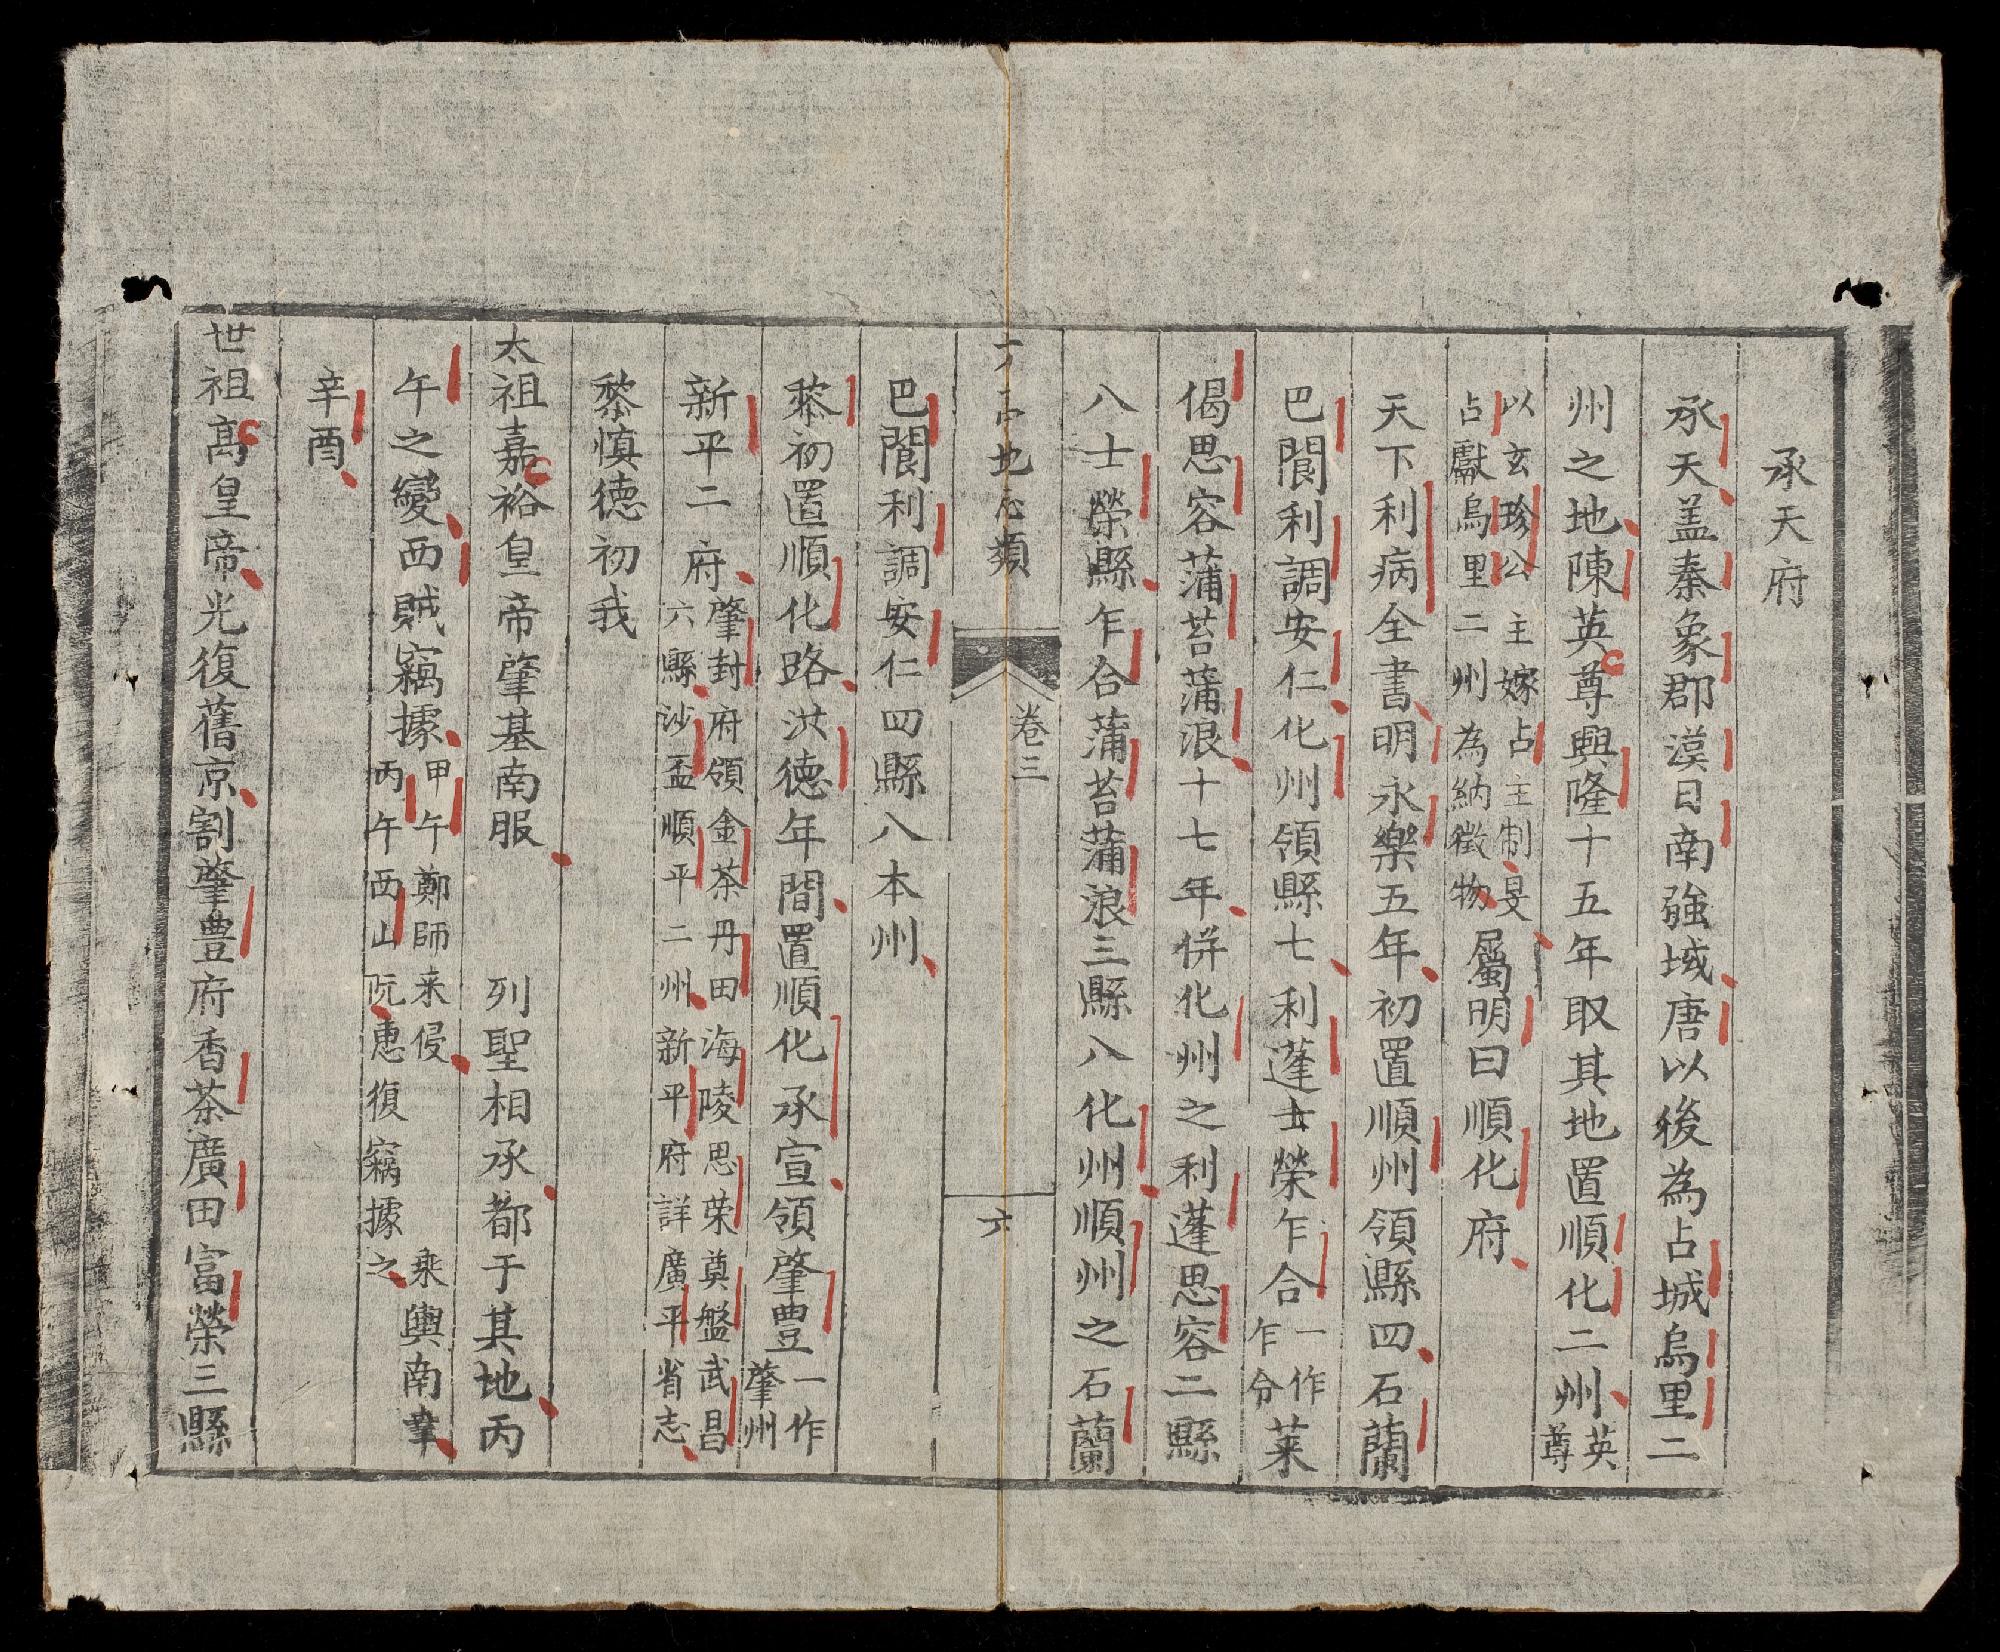 承天府
承天盖秦象郡漠日南強域唐以後為占城烏里二
州之地陳英尊興隆十五年取其地置順化二州英尊
以玄珍公主嫁占主制旻
占獻烏里二州為納徵物屬明曰順化府
天下利病全書明永樂五年初置順州領縣四石蘭
巴閬利調安仁化州領縣七利蓬士榮乍合一作乍分茶
偈思容蒲苔蒲浪十七年併化州之利蓬思容二縣
八士榮縣乍合蒲苔蒲浪三縣八化州順州之石蘭
地志類
卷三
六
巴閬利調安仁四縣八本州
黎初置順化路洪德年間置順化承宣領肇豊一作肇州
新平二府肇封府領金茶丹田海陵思荣奠盤武昌
六縣沙盃順平二州新平府詳廣平省志
黎慎德初我
太祖嘉裕皇帝肇基南服 列聖相承都于其地丙
午之變西賊竊據甲午鄭師来侵 乘輿南幸
丙午西山阮惠復竊據之
辛酉
世祖高皇帝光復舊京割肇豊府香茶廣田富榮三縣